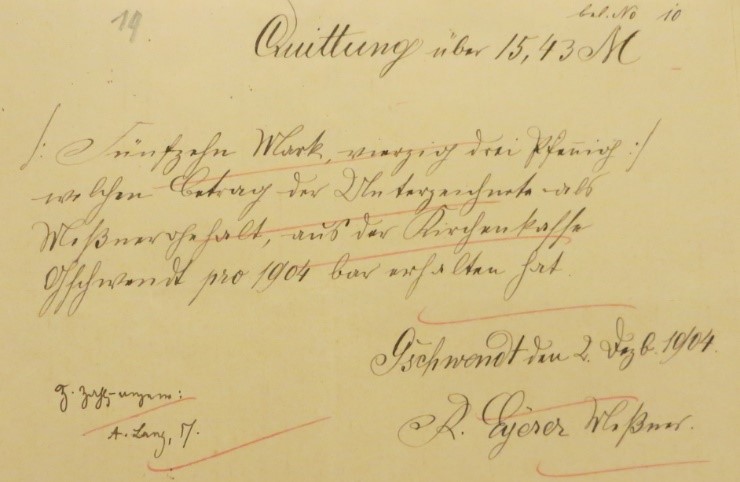 14
bel. No 10
Quittung über 15,43 M
/: Fünfzehn Mark, vierzig drei Pfennig :/
welchen Betrag der Unterzeichnete als
Meßnergehalt, aus der Kirchenkasse
Gschwendt pro 1904 bar erhalten hat.
Gschwendt den 2. Dezb. 1904.
Z. Zahlg. anzuw:
A. Lang, Pf.
R. Eyerer Meßner.